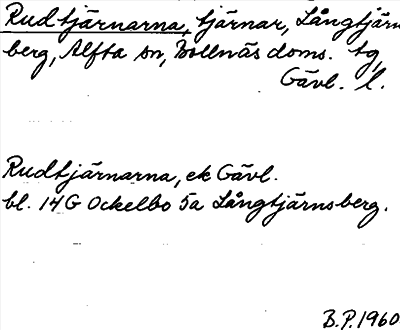 Rudtjärnarna, tjärnar, Långtjärn
berg, Alfta sn, Bollnäs doms. tg,
Gävl. l.
Rudtjärnarna, ek Gävl.
bl. 14G Ockelbo 5a Långtjärnsberg.
B.P. 1960